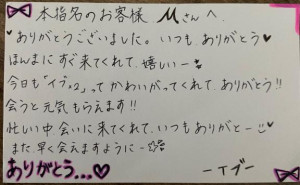 本指名のお客様 Mさんへ.
ありがとうございました。いつもありがとう♥
ほんまにすぐ来てくれて、嬉しいー♥
今日も「イブ」って かわいがってくれて、ありがとう!!
会うと元気もらえます!!
忙しい中 会いに来てくれて、いつもありがとー
また 早く会えますようにー☆
ありがとう...♡
ーイブー